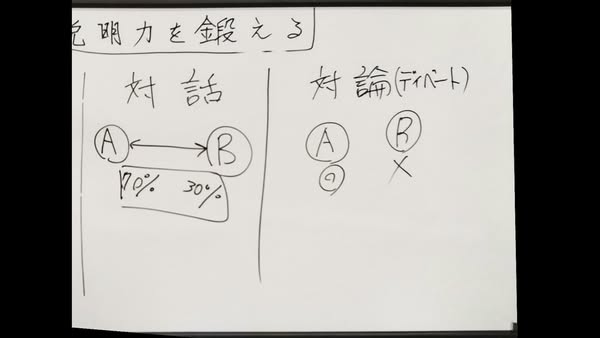 説明力を鍛える
対話
A B
70% 30%
対論(ディベート)
A B
◎ ×